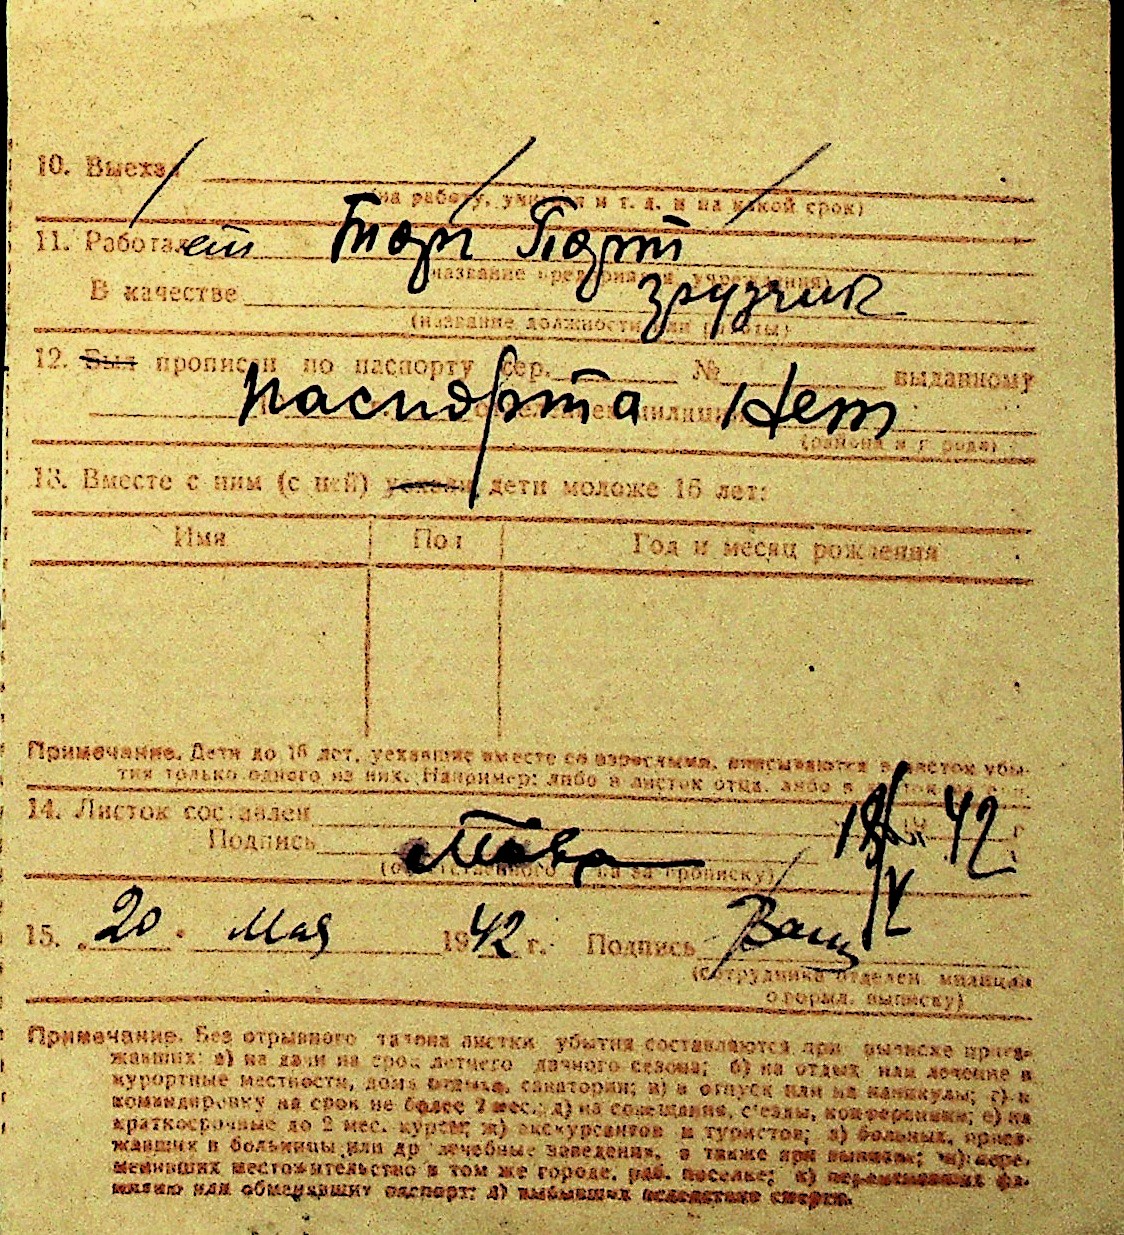 10. Выехал
(на работу, учиться и т. д. и на какой срок)
11. Работает Торг Порт
(название предприятия, учреждения)
В качестве грузчик
(название должности или работы)
12. Был прописан по паспорту сер. № выданному
паспорта Нет
отделением милиции
(района и города)
13. Вместе с ним (с ней) уехали дети моложе 16 лет:
Имя Пол Год и месяц рождения
Примечание. Дети до 16 лет, уехавшие вместе со взрослыми, вписываются в листок убы-
тия только одного из них. Например: либо в листок отца, либо в листок
14. Листок составлен 42 г.
Подпись
(ответственного лица за прописку)
15. „20“ Мая 1942 г. Подпись
(сотрудника отделен. милиции
оформл. выписку)
Примечание. Без отрывного талона листки убытия составляются при выписке приез-
жавших: а) на дачи на срок летнего дачного сезона; б) на отдых или лечение в
курортные местности, дома отдыха, санатории; в) в отпуск или на каникулы; г) в
командировку на срок не более 2 мес.; д) на совещания, съезды, конференции; е) на
краткосрочные до 2 мес. курсы; ж) экскурсантов и туристов; з) больных, приез-
жавших в больницы или др. лечебные заведения, а также при выписке; и) пере-
менивших местожительство в том же городе, раб. поселке; к) переменивших фа-
милию или обменявших паспорт; л) выбывших вследствие смерти.